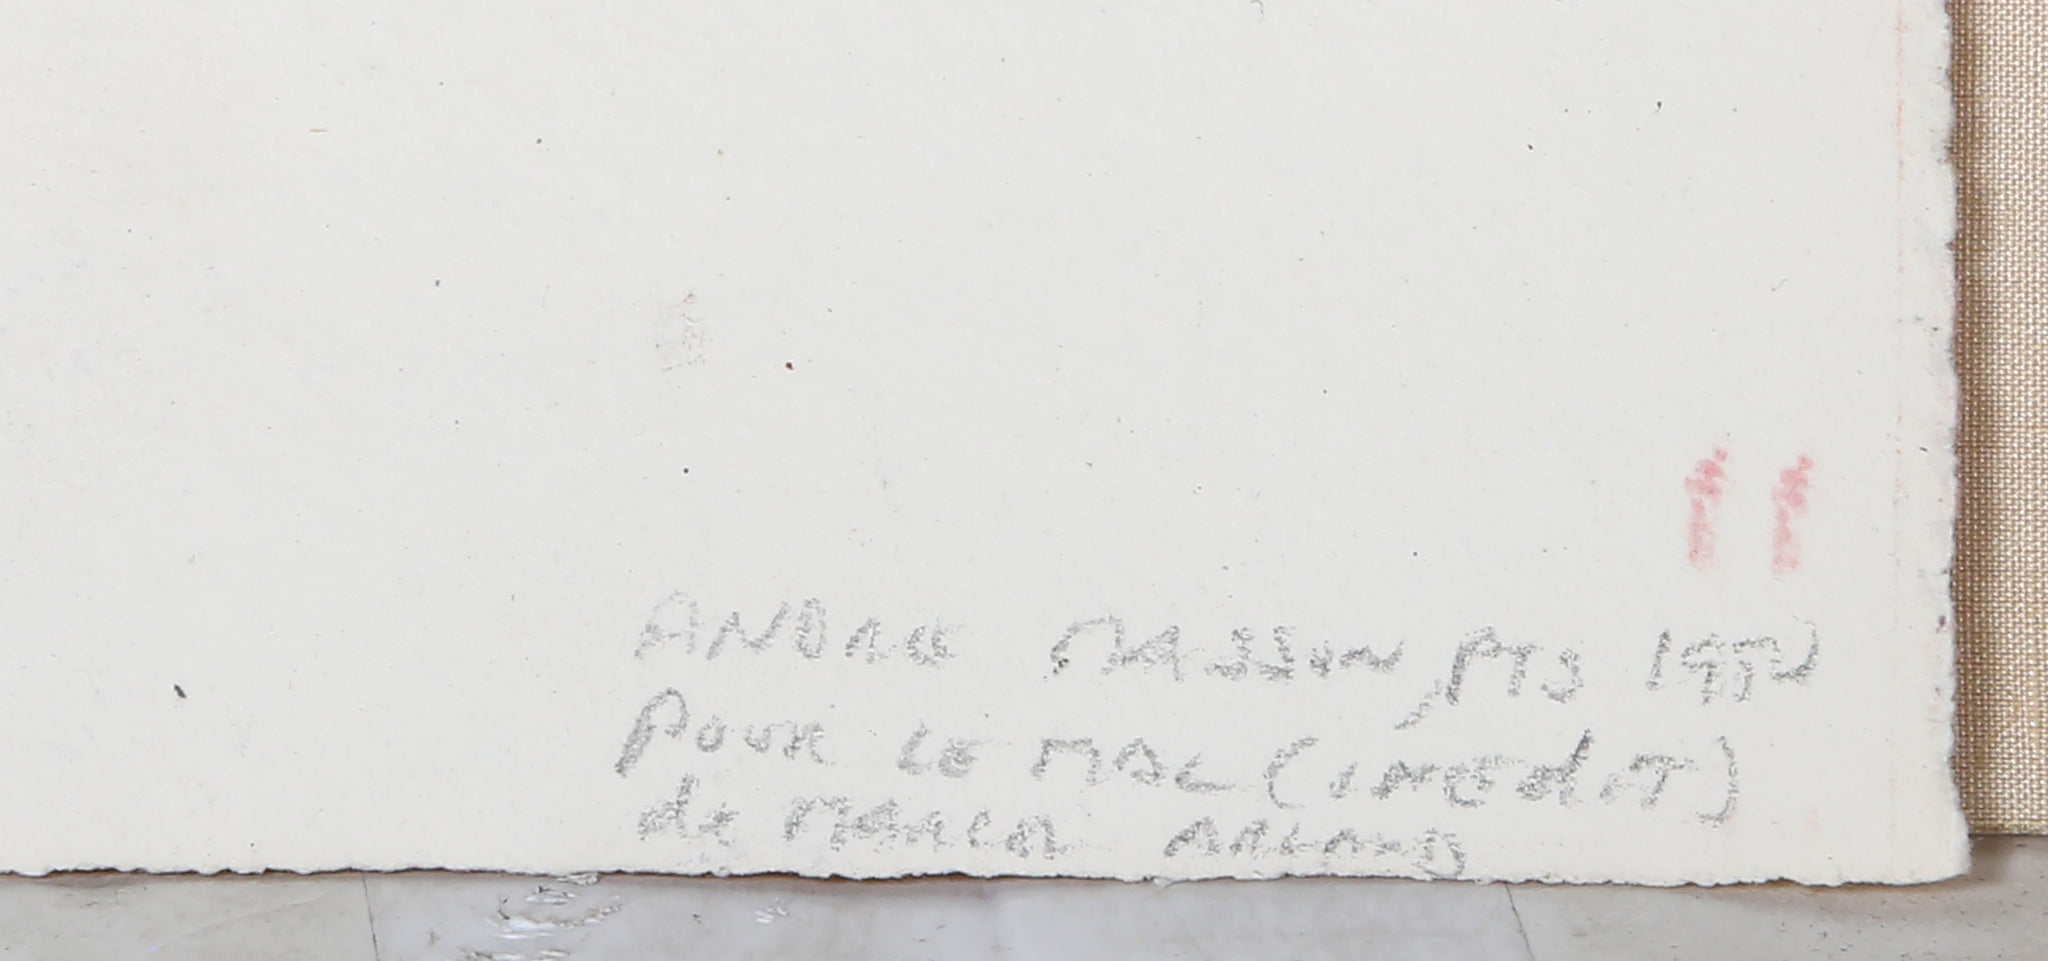 11
ANDRE MASSON, PTS
POUR LE MAL (INEDIT)
de MARCEL ARLAND